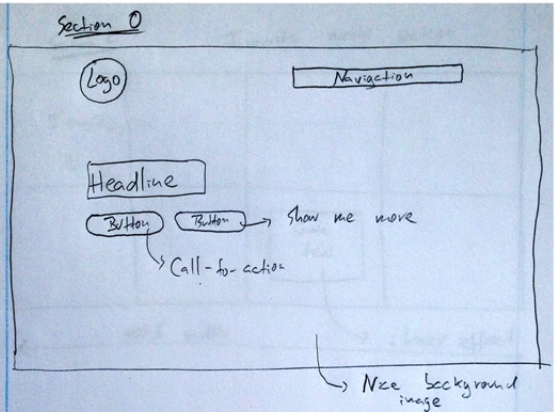 Section 0
Logo
Navigation
Headline
Button Button Show me more
Call-to-action
Nice background
image